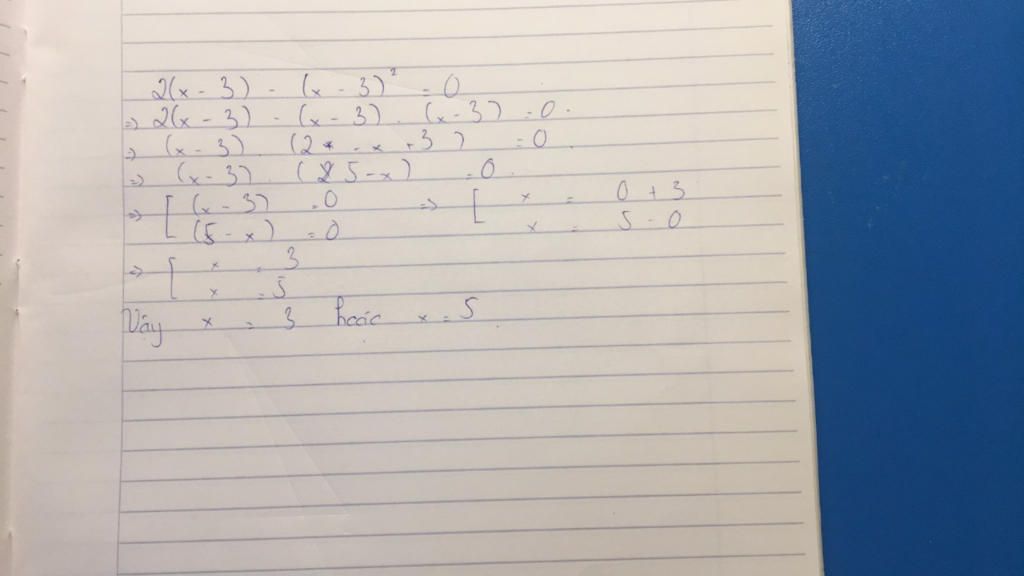 2(x - 3) - (x - 3)² = 0
=> 2(x - 3) - (x - 3) . (x - 3) = 0.
=> (x - 3) . (2 - x + 3) = 0.
=> (x - 3) . (5 - x) = 0.
=> [ (x - 3) = 0 => [ x = 0 + 3
(5 - x) = 0 x = 5 - 0
=> [ x = 3
x = 5
Vậy x = 3 hoặc x = 5